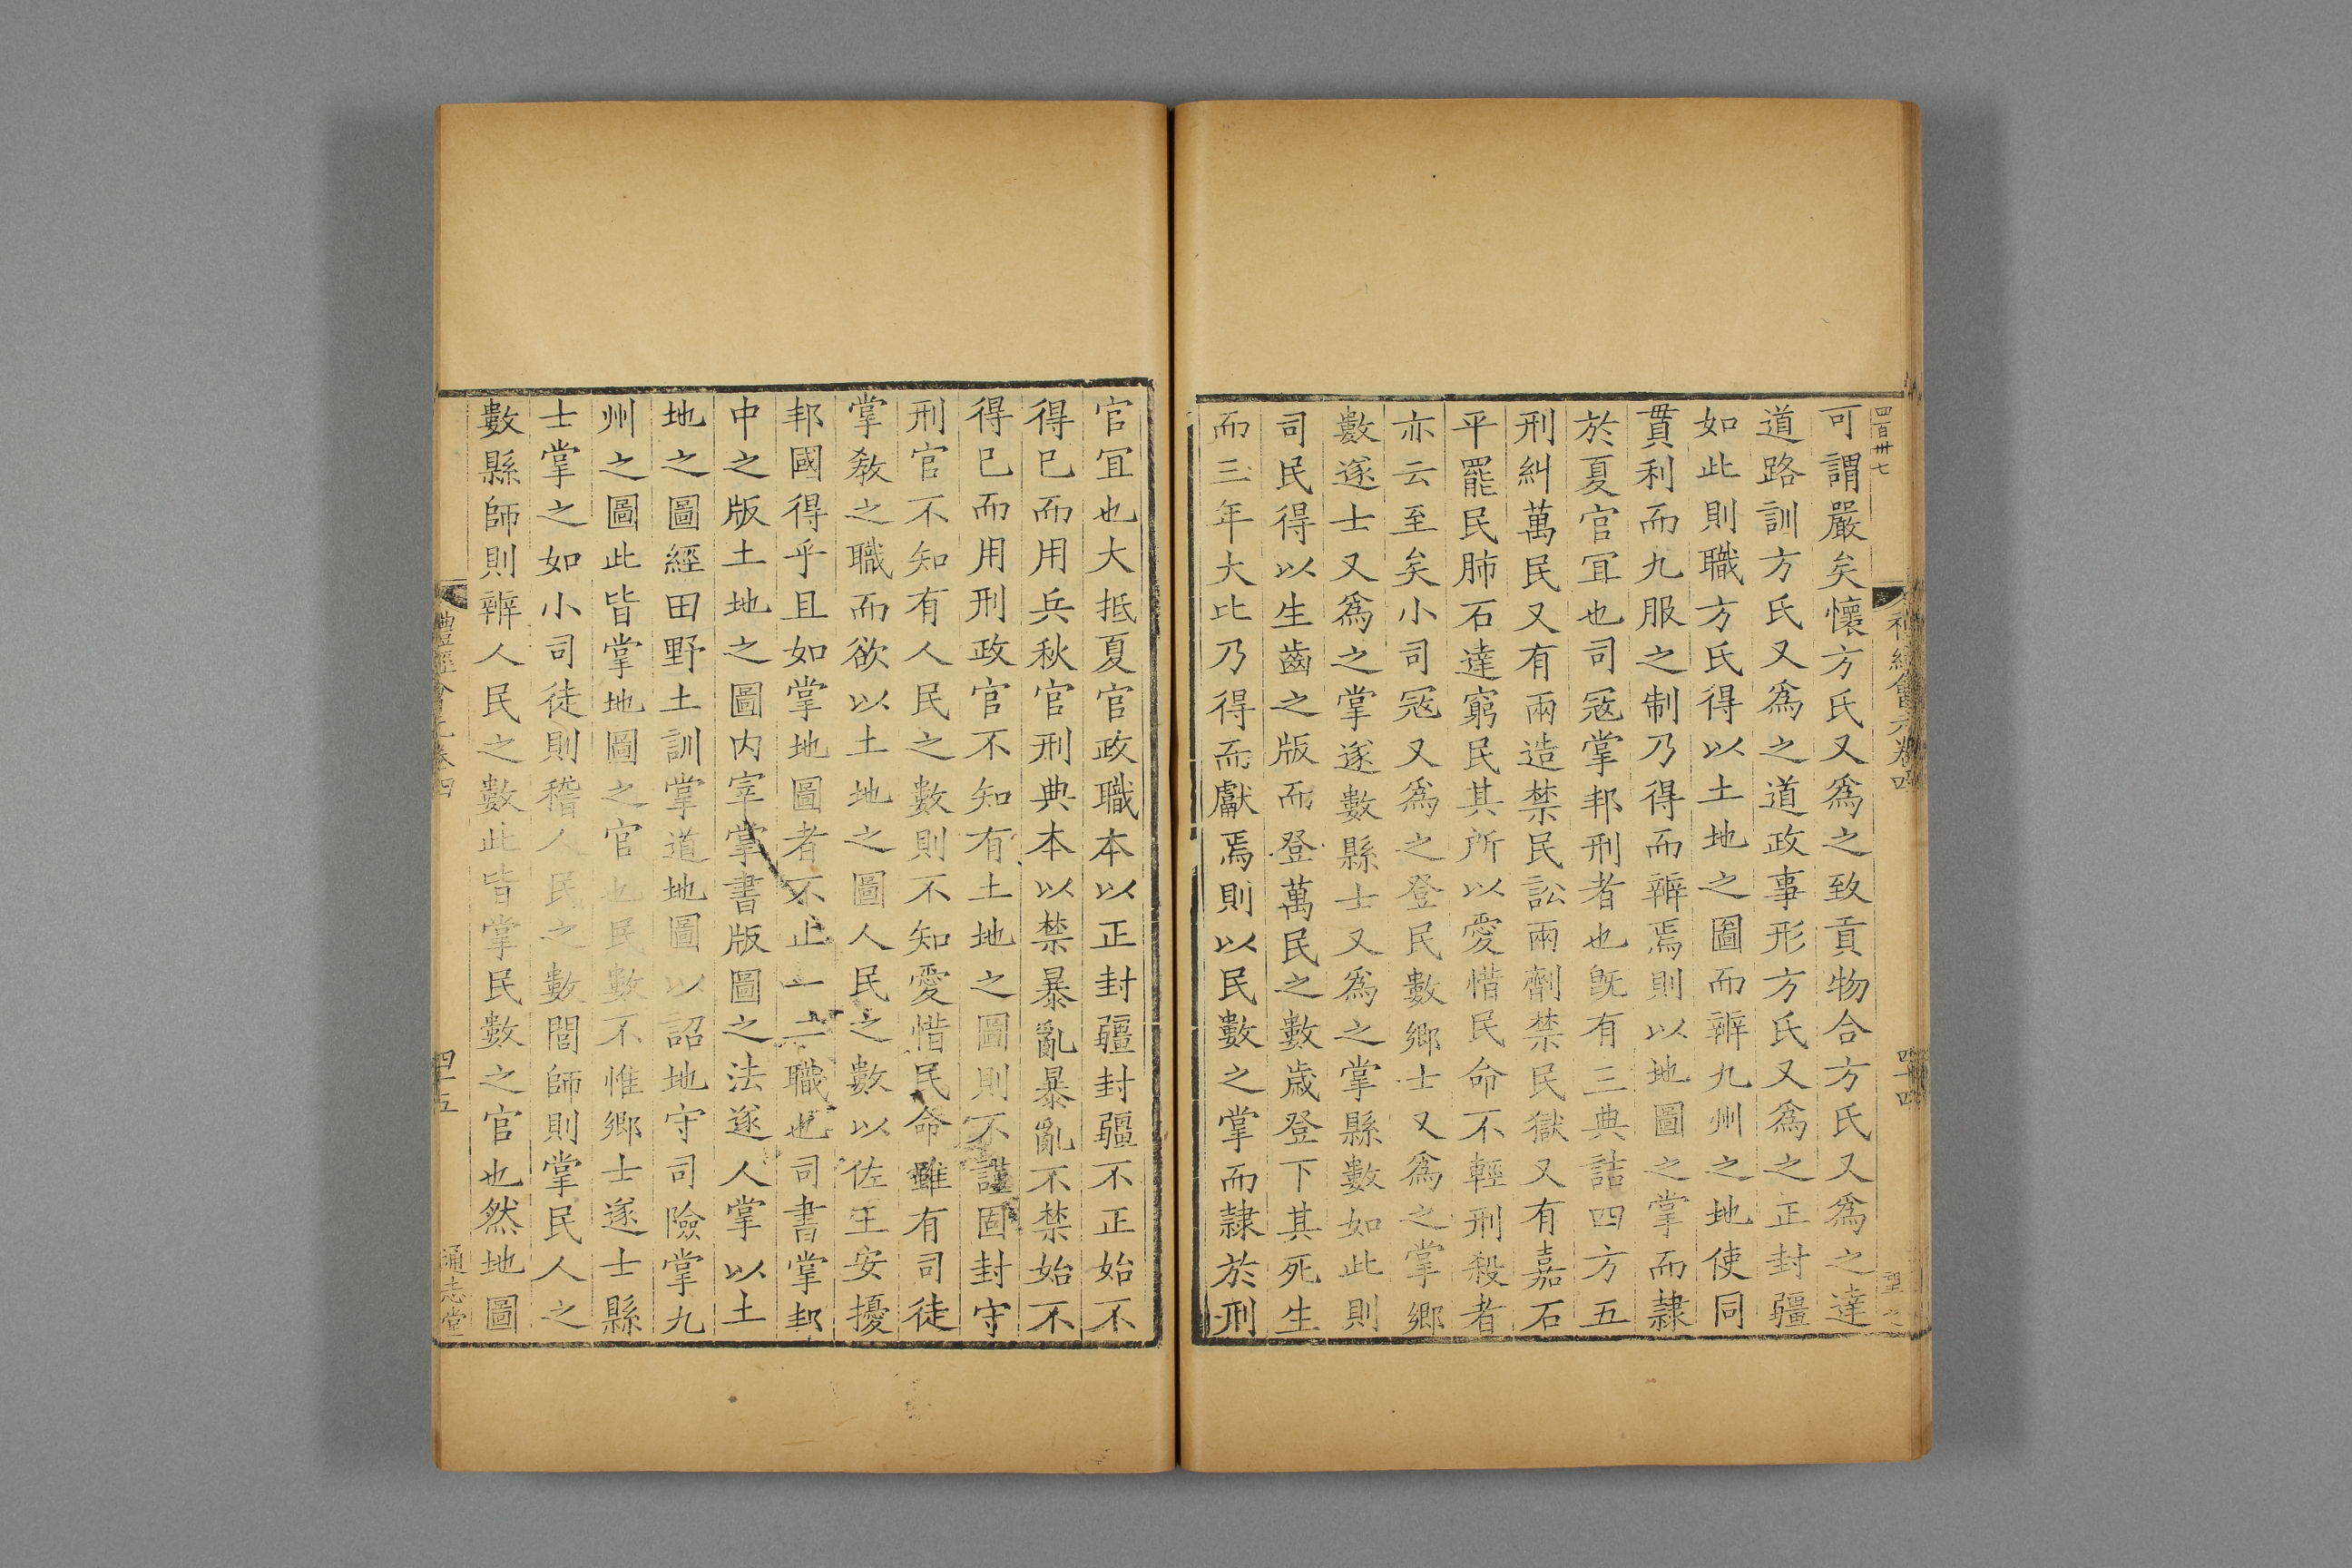 四百卅七
禮經會元卷四
四十四
可謂嚴矣懷方氏又爲之致貢物合方氏又爲之達
道路訓方氏又爲之道政事形方氏又爲之正封疆
如此則職方氏得以土地之圖而辨九州之地使同
貫利而九服之制乃得而辨焉則以地圖之掌而隷
於夏官冝也司冦掌邦刑者也旣有三典詰四方五
刑糾萬民又有兩造禁民訟兩劑禁民獄又有嘉石
平罷民肺石達窮民其所以愛惜民命不輕刑殺者
亦云至矣小司冦又爲之登民數鄉士又爲之掌鄉
數遂士又爲之掌遂數縣士又爲之掌縣數如此則
司民得以生齒之版而登萬民之數歲登下其死生
而三年大比乃得而獻焉則以民數之掌而隷於刑
官冝也大抵夏官政職本以正封疆封疆不正始不
得已而用兵秋官刑典本以禁暴亂暴亂不禁始不
得已而用刑政官不知有土地之圖則不謹固封守
刑官不知有人民之數則不知愛惜民命雖有司徒
掌敎之職而欲以土地之圖人民之數以佐王安擾
邦國得乎且如掌地圖者不止一二職也司書掌邦
中之版土地之圖内宰掌書版圖之法遂人掌以土
地之圖經田野土訓掌道地圖以詔地守司險掌九
州之圖此皆掌地圖之官也民數不惟鄉士遂士縣
士掌之如小司徒則稽人民之數閭師則掌民人之
數縣師則辨人民之數此皆掌民數之官也然地圖
禮經會元卷四
四十五
通志堂